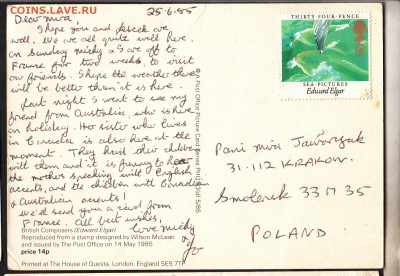 COINS.LAVE.RU
25-6-85
Dear Mira,
I hope you and Leszek are
well. We are all quite well here.
On Sunday Micky & I are off to
France for two weeks, to visit
our friends. I hope the weather there
will be better than it is here.
Last night I went to see my
friend from Australia, who is here
on holiday. Her sister who lives
in Canada is also here at the
moment. They had their children
with them and it is funny to hear
the mothers speaking with English
accents, and the children with Canadian
& Australian accents!
We'll send you a card from
France. All best wishes,
love Micky
& Jo
British Composers (Edward Elgar)
Reproduced from a stamp designed by Wilson McLean
and issued by The Post Office on 14 May 1985
price 14p
Printed at The House of Questa, London, England SE5 7TP
© A Post Office Picture Card Series PHQ 5/85
THIRTY·FOUR·PENCE
SEA·PICTURES
Edward Elgar
Pani Mira Jaworczak
31-112 KRAKOW.
Smoleńsk 33 M 35
POLAND